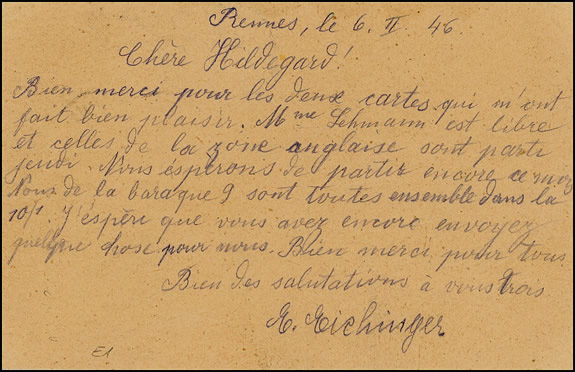 Rennes, le 6. II. 46.
Chère Hildegard!
Bien merci pour les deux cartes qui m'ont
fait bien plaisir. Mme Lehmann est libre
et celles de la zone anglaise sont parti
jeudi. Nous éspérons de partir encore ce mois
Nous de la baraque 9 sont toutes ensemble dans la
10/1. J'éspère que vous avez encore envoyez
quelque chose pour nous. Bien merci pour tous
Bien des salutations à vous trois
E. Eichinger
E1